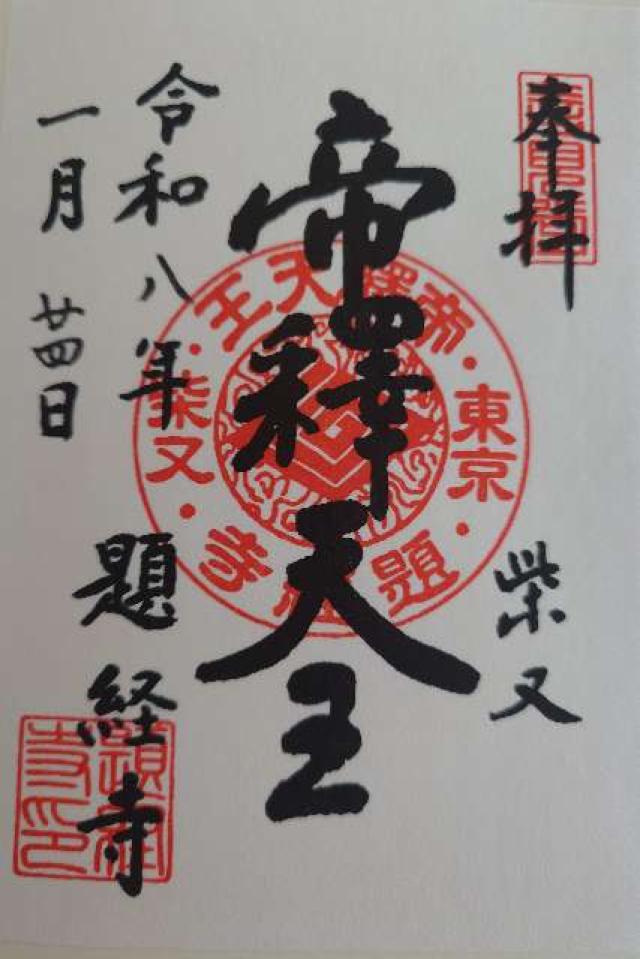 奉拝
柴又
帝釋天王
令和八年
一月廿四日
題経寺
帝釋天王
東京
柴又
題経寺
題経寺印